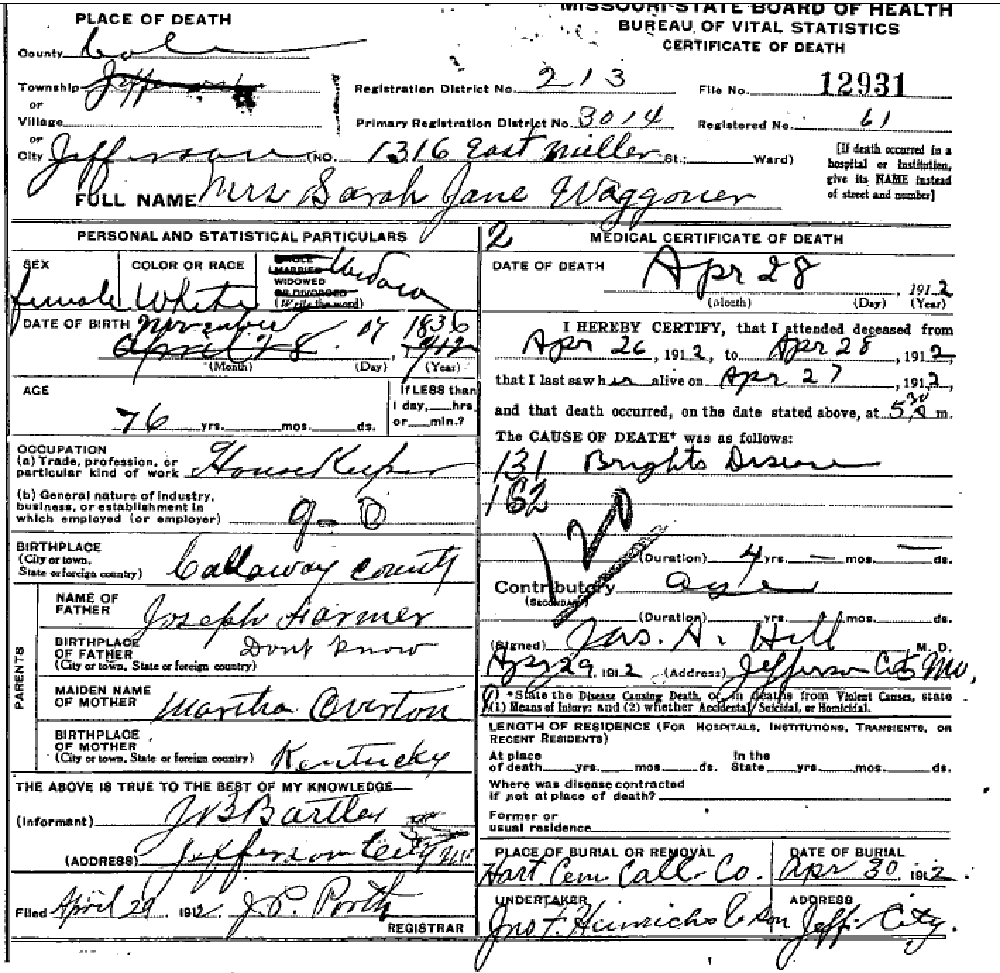 PLACE OF DEATH
County Cole
Township Jefferson
or
Village
or
City Jefferson (NO. 1316 East Miller St.; Ward)
FULL NAME Mrs Sarah Jane Waggoner
MISSOURI STATE BOARD OF HEALTH
BUREAU OF VITAL STATISTICS
CERTIFICATE OF DEATH
Registration District No. 213 File No. 12931
Primary Registration District No. 3014 Registered No. 61
[If death occurred in a
hospital or institution,
give its NAME instead
of street and number]
PERSONAL AND STATISTICAL PARTICULARS
SEX female
COLOR OR RACE White
SINGLE
MARRIED
WIDOWED
OR DIVORCED
(Write the word)
Widow
DATE OF BIRTH November 17, 1836
April 28, 1912
(Month) (Day) (Year)
AGE
76 yrs. mos. ds.
If LESS than
1 day, hrs.
or min.?
OCCUPATION
(a) Trade, profession, or
particular kind of work House Keeper
(b) General nature of industry,
business, or establishment in
which employed (or employer) 9-0
BIRTHPLACE
(City or town,
State or foreign country) Callaway County
PARENTS
NAME OF
FATHER Joseph Farmer
BIRTHPLACE
OF FATHER Dont know
(City or town, State or foreign country)
MAIDEN NAME
OF MOTHER Martha Overton
BIRTHPLACE
OF MOTHER
(City or town, State or foreign country) Kentucky
THE ABOVE IS TRUE TO THE BEST OF MY KNOWLEDGE
(Informant) J B Bartley
(ADDRESS) Jefferson City
Filed April 29 1912 J. P. Porth
REGISTRAR
2 MEDICAL CERTIFICATE OF DEATH
DATE OF DEATH Apr 28, 1912
(Month) (Day) (Year)
I HEREBY CERTIFY, that I attended deceased from
Apr 26, 1912, to Apr 28, 1912,
that I last saw her alive on Apr 27, 1912,
and that death occurred, on the date stated above, at 5 30 A m.
The CAUSE OF DEATH* was as follows:
131 Brights Disease
162
120
(Duration) 4 yrs. — mos. — ds.
Contributory age
(SECONDARY)
(Duration) yrs. mos. ds.
(Signed) Jas. A. Hill M. D.
Apr 29, 1912 (Address) Jefferson City Mo.
*State the Disease Causing Death, or, in deaths from Violent Causes, state
(1) Means of Injury; and (2) whether Accidental, Suicidal, or Homicidal.
LENGTH OF RESIDENCE (FOR HOSPITALS, INSTITUTIONS, TRANSIENTS, OR
RECENT RESIDENTS)
At place In the
of death yrs. mos. ds. State yrs. mos. ds.
Where was disease contracted
if not at place of death?
Former or
usual residence
PLACE OF BURIAL OR REMOVAL DATE OF BURIAL
Hart Cem Call. Co. Apr 30, 1912
UNDERTAKER ADDRESS
Jno F. Heinrichs & Son Jeff. City.